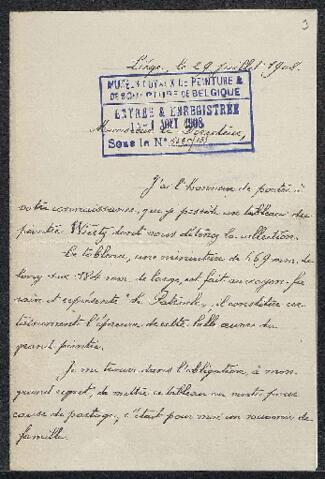 3
Liége, le 29 juillet 1908.
MUSÉES ROYAUX DE PEINTURE &
DE SCULPTURE DE BELGIQUE
ENTRÉE & ENREGISTRÉE
1 AOUT 1908
Monsieur le Directeur,
Sous le No
J'ai l'honneur de porter à
votre connaissance, que je possède un tableau du
peintre Wiertz dont vous détenez la collection.
Ce tableau, une miniature de 469 mm. de
long sur 184 mm. de large, est fait au crayon fu-
sain et représente "le Patrocle", il constitue cer-
tainement l'épreuve de cette belle œuvre du
grand peintre.
Je me trouve dans l'obligation, à mon
grand regret, de mettre ce tableau en vente pour
cause de partage, c'était pour moi un souvenir de
famille.